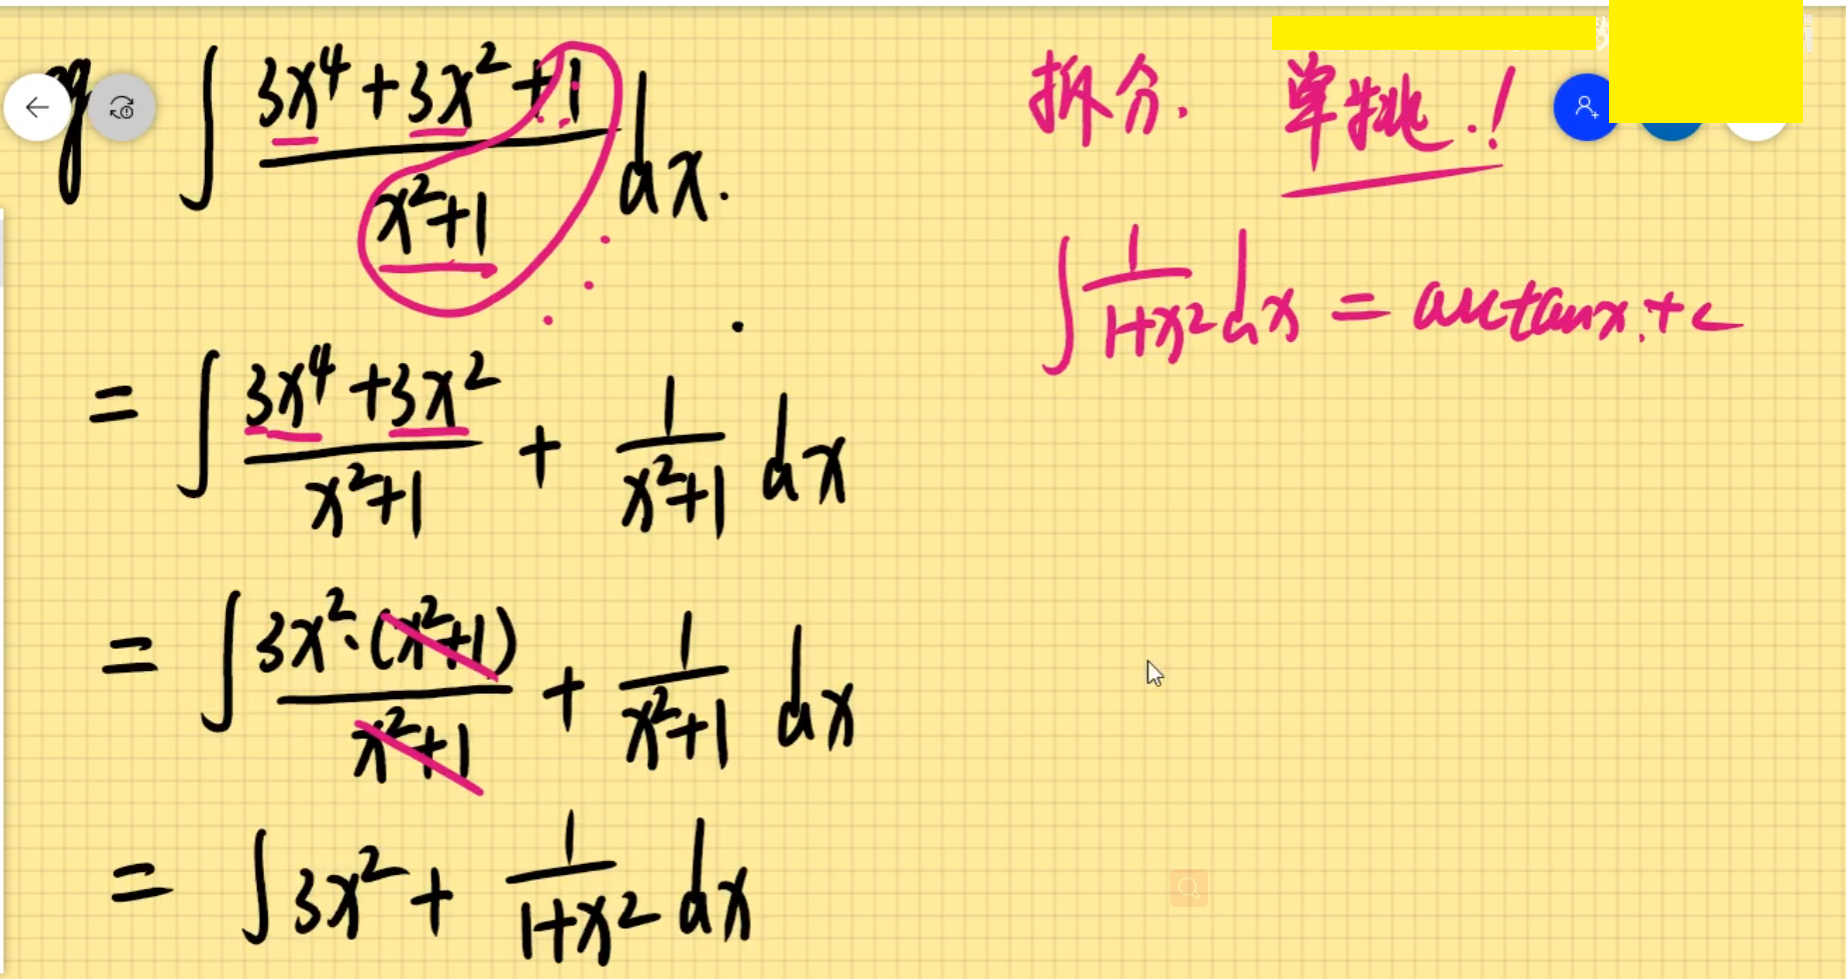 eg ∫ (3x⁴+3x²+1)/(x²+1) dx.
拆分. 单挑.!
∫ 1/(1+x²) dx = arctanx.+c
= ∫ (3x⁴+3x²)/(x²+1) + 1/(x²+1) dx
= ∫ 3x²·(x²+1)/(x²+1) + 1/(x²+1) dx
= ∫ 3x² + 1/(1+x²) dx